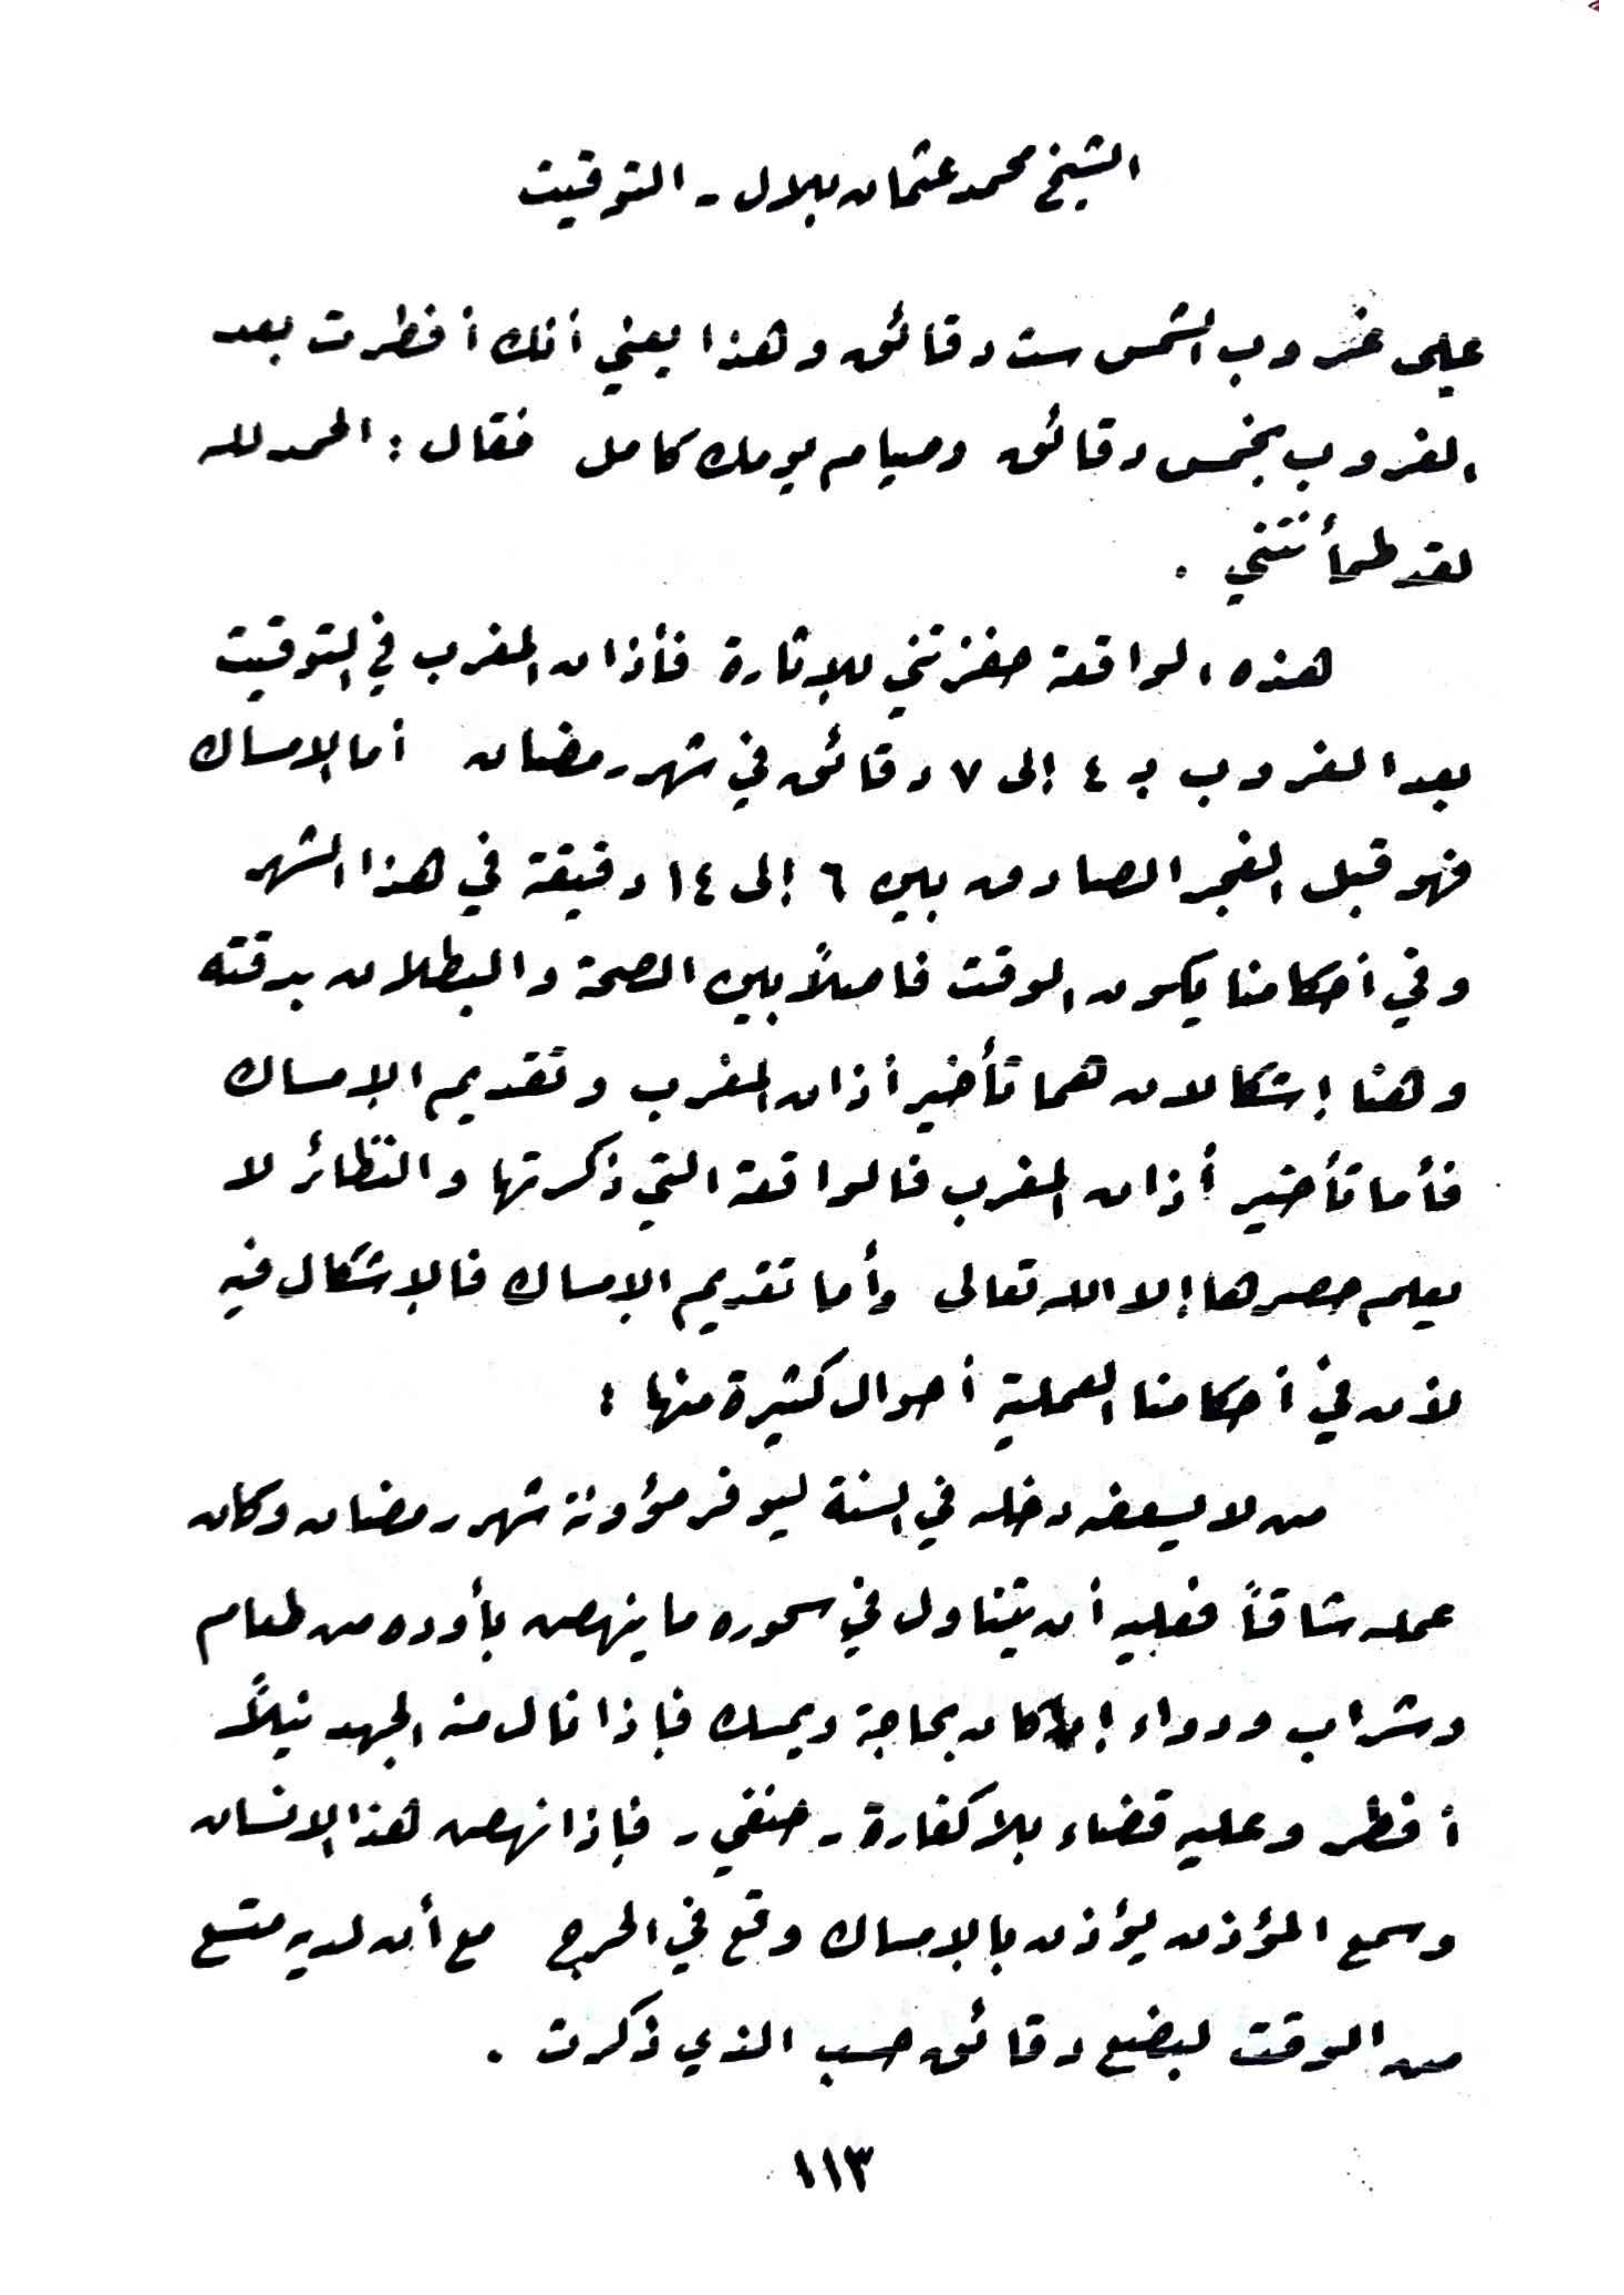 الشيخ محمد عثمان بلال - التوقيت
على غروب الشمس ست دقائق وهذا يعني أنك أفطرت بعد
الغروب بخمس دقائق وصيام يومك كامل فقال : الحمد لله
لقد طمأنتني .
هذه الواقعة حفزتني للإثارة فأذان المغرب في التوقيت
بعد الغروب بـ ٤ إلى ٧ دقائق في شهر رمضان أما الإمساك
فهو قبل الفجر الصادق بين ٦ إلى ١٤ دقيقة في هذا الشهر
وفي أحكامنا يكون الوقت فاصلاً بين الصحة والبطلان بدقته
وهنا إشكالان هما تأخير أذان المغرب وتقديم الإمساك
فأما تأخير أذان المغرب فالواقعة التي ذكرتها والنظائر لا
يعلم حصرها إلا الله تعالى وأما تقديم الإمساك فالإشكال فيه
لأن في أحكامنا العملية أحوال كثيرة منها :
من لا يسعفه دخله في السنة ليوفر مؤونة شهر رمضان وكان
عمله شاقاً فعليه أن يتناول في سحوره ما ينهض بأوده من طعام
وشراب ودواء إن كان بحاجة ويمسك فإذا نال منه الجهد نيلاً
أفطر وعليه قضاء بلا كفارة - حنفي - فإذا نهض هذا الإنسان
وسمع المؤذن يؤذن بالإمساك وقع في الحرج مع أن لديه متسع
من الوقت لبضع دقائق حسب الذي ذكرت .
١١٣